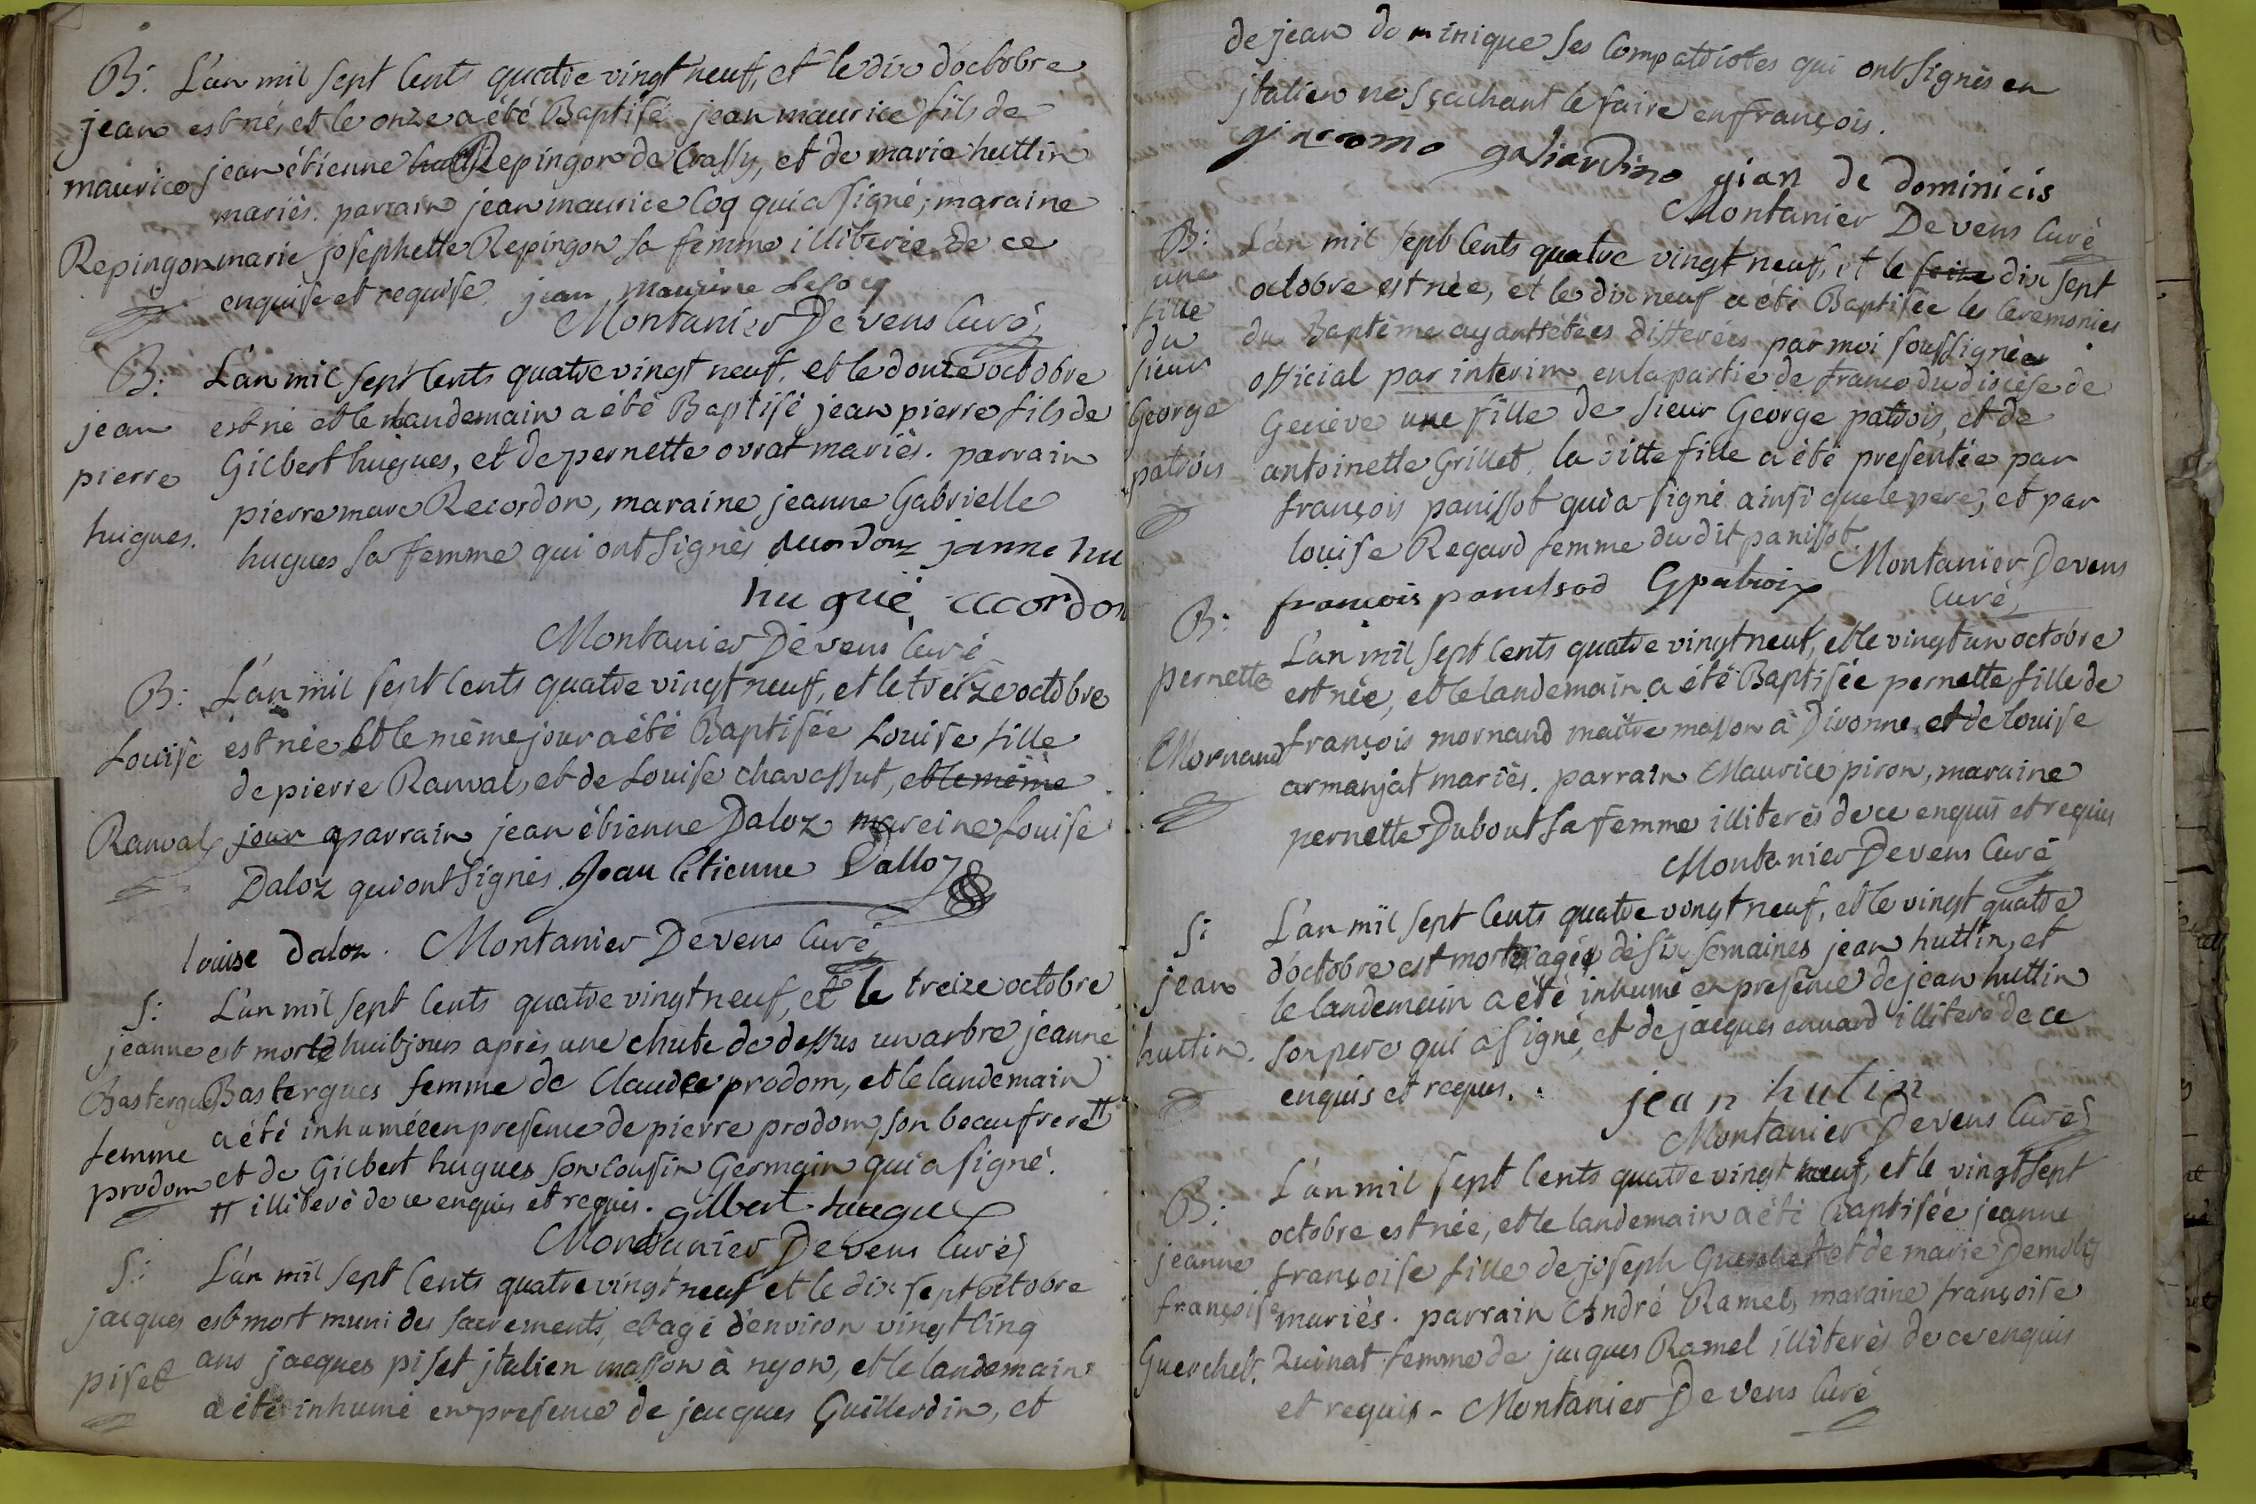 B: L'an mil sept Cents quatre vingt neuf, et le dix d'octobre
jean est né, et le onze a été Baptisé jean maurice fils de
maurice jean étienne Repingon de Crassy, et de marie huttin
mariés. parrain jean maurice Coq qui a signé; maraine
Repingon marie josephette Repingon sa femme illiterée de ce
enquise et requise. jean maurice Lecoq
Montanier Devens Curé
B: L'an mil sept Cents quatre vingt neuf, et le douze octobre
jean est né et le landemain a été Baptisé jean pierre fils de
pierre Gilbert hugues, et de pernette ovrat mariés. parrain
pierre marc Recordon, maraine jeanne Gabrielle
hugues. hugues sa femme qui ont signés janne hu
hugue
Montanier Devens Curé
B: L'an mil sept Cents quatre vingt neuf, et le treize octobre
Louise est née et le même jour a été Baptisée Louise fille
de pierre Ranval, et de Louise chavassut, et le même
Ranval jour a parrain jean étienne Daloz mareine Louise
Daloz qui ont signés. Jean Etienne Dalloz
louise daloz. Montanier Devens Curé
S: L'an mil sept Cents quatre vingt neuf, et le treize octobre
jeanne est morte huit jours après une chute de dessus un arbre jeanne
Bastergues Bastergues femme de Claude prodom, et le landemain
a été inhumée en presence de pierre prodom, son beaufrere #
femme et de Gilbert hugues son Cousin Germain qui a signé.
prodom # illiteré de ce enquis et requis. gilbert hugue
Montanier Devens Curé
S: L'an mil sept Cents quatre vingt neuf et le dix sept octobre
jacques est mort muni des sacrements, et agé d'environ vingt Cinq
piset ans jacques piset jtalien masson à nyon, et le landemain
a été inhumé en presence de jacques Guillerdin, et
de jean dominique ses Compatriotes qui ont signés en
jtalien ne sçachant le faire en françois.
giacomo galiardino gian de dominicis
Montanier Devens Curé
B: L'an mil sept Cents quatre vingt neuf, et le seize dix sept
une octobre est née, et le dix neuf a été Baptisée les Ceremonies
fille du Baptême ayant étées differées par moi soussigné
du sieur official par interim en la partie de france du diocèse de
George Geneve une fille de sieur George patrois, et de
patrois antoinette Grillet. la ditte fille a été presentée par
françois panissot qui a signé ainsi que le pere, et par
louise Regard femme du dit panissot
Montanier Devens
françois panissod Gpatroix Curé
B: L'an mil sept Cents quatre vingt neuf, et le vingt un octobre
pernette est née, et le landemain a été Baptisée pernette fille de
Mornand françois mornand maitre masson à Divonne, et de louise
armanjat mariés. parrain Maurice piron, maraine
pernette Dubout sa femme illiterés de ce enquis et requis
Montanier Devens Curé
S: L'an mil sept Cents quatre vingt neuf, et le vingt quatre
jean d'octobre est mort agé de six semaines jean huttin, et
le landemain a été inhumé en presence de jean huttin
huttin. son pere qui a signé, et de jacques envard illiteré de ce
enquis et requis.
jean hutin
Montanier Devens Curé
B: L'an mil sept Cents quatre vingt neuf, et le vingt sept
octobre est née, et le landemain a été Baptisée jeanne
jeanne françoise fille de joseph Guerchet et de marie
françoise mariés. parrain André Ramel, maraine françoise
Guerchet. Zuinat femme de jacques Ramel illiterés de ce enquis
et requis - Montanier Devens Curé